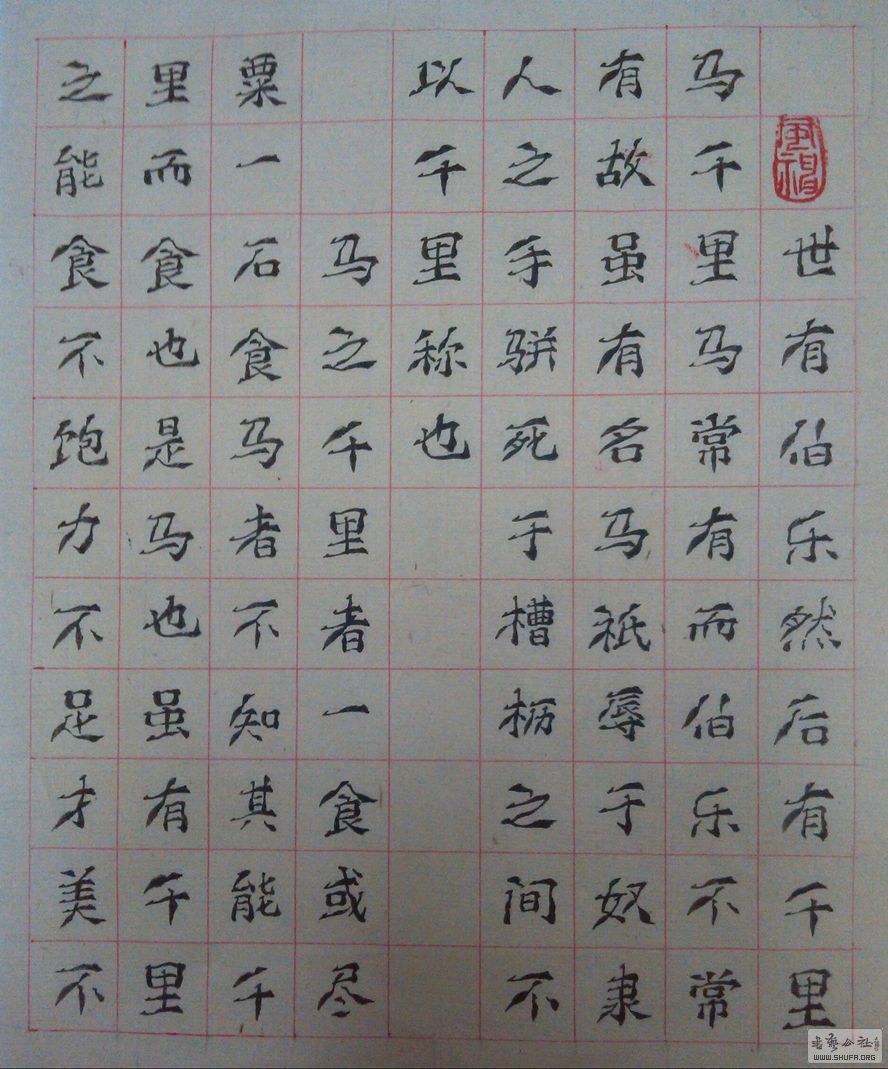 世有伯乐然后有千里
马千里马常有而伯乐不常
有故虽有名马祇辱于奴隶
人之手骈死于槽枥之间不
以千里称也
马之千里者一食或尽
粟一石食马者不知其能千
里而食也是马也虽有千里
之能食不饱力不足才美不
書藝公社
WWW.SHUFA.ORG